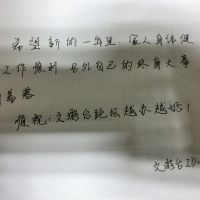 希望新的一年里,家人身体健
工作顺利 另外自己的终身大事
有着落
恒祝:文游台论坛越办越好!
文游台